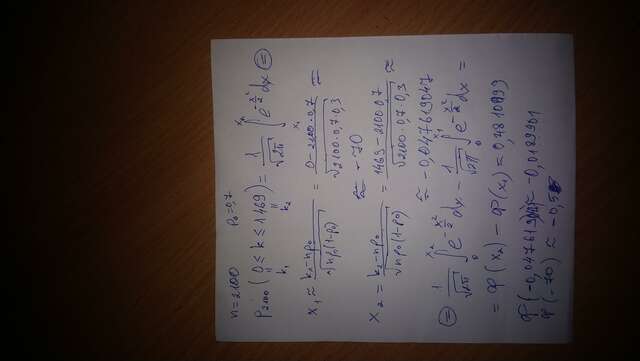 n=2100 p₀=0,7.
P₂₁₀₀(0 ≤ k ≤ 1469) = 1/√2π ∫ₓ₁ˣ² e^(-x²/2) dx ⊜
k₁ k₂
x₁ ≈ (k₂-np₀)/√(np₀(1-p₀)) = (0-2100·0,7)/√(2100·0,7·0,3) ≈
≈ -70
x₂ = (k₂-np₀)/√(np₀(1-p₀)) = (1469-2100·0,7)/√(2100·0,7·0,3) ≈
≈ -0,047619047
⊜ 1/√2π ∫₀ˣ² e^(-x²/2) dx - 1/√2π ∫₀ˣ¹ e^(-x²/2) dx =
= Φ(x₂) - Φ(x₁) = 0,4810099
Φ(-0,047619) ≈ -0,0189901
Φ(-70) ≈ -0,5